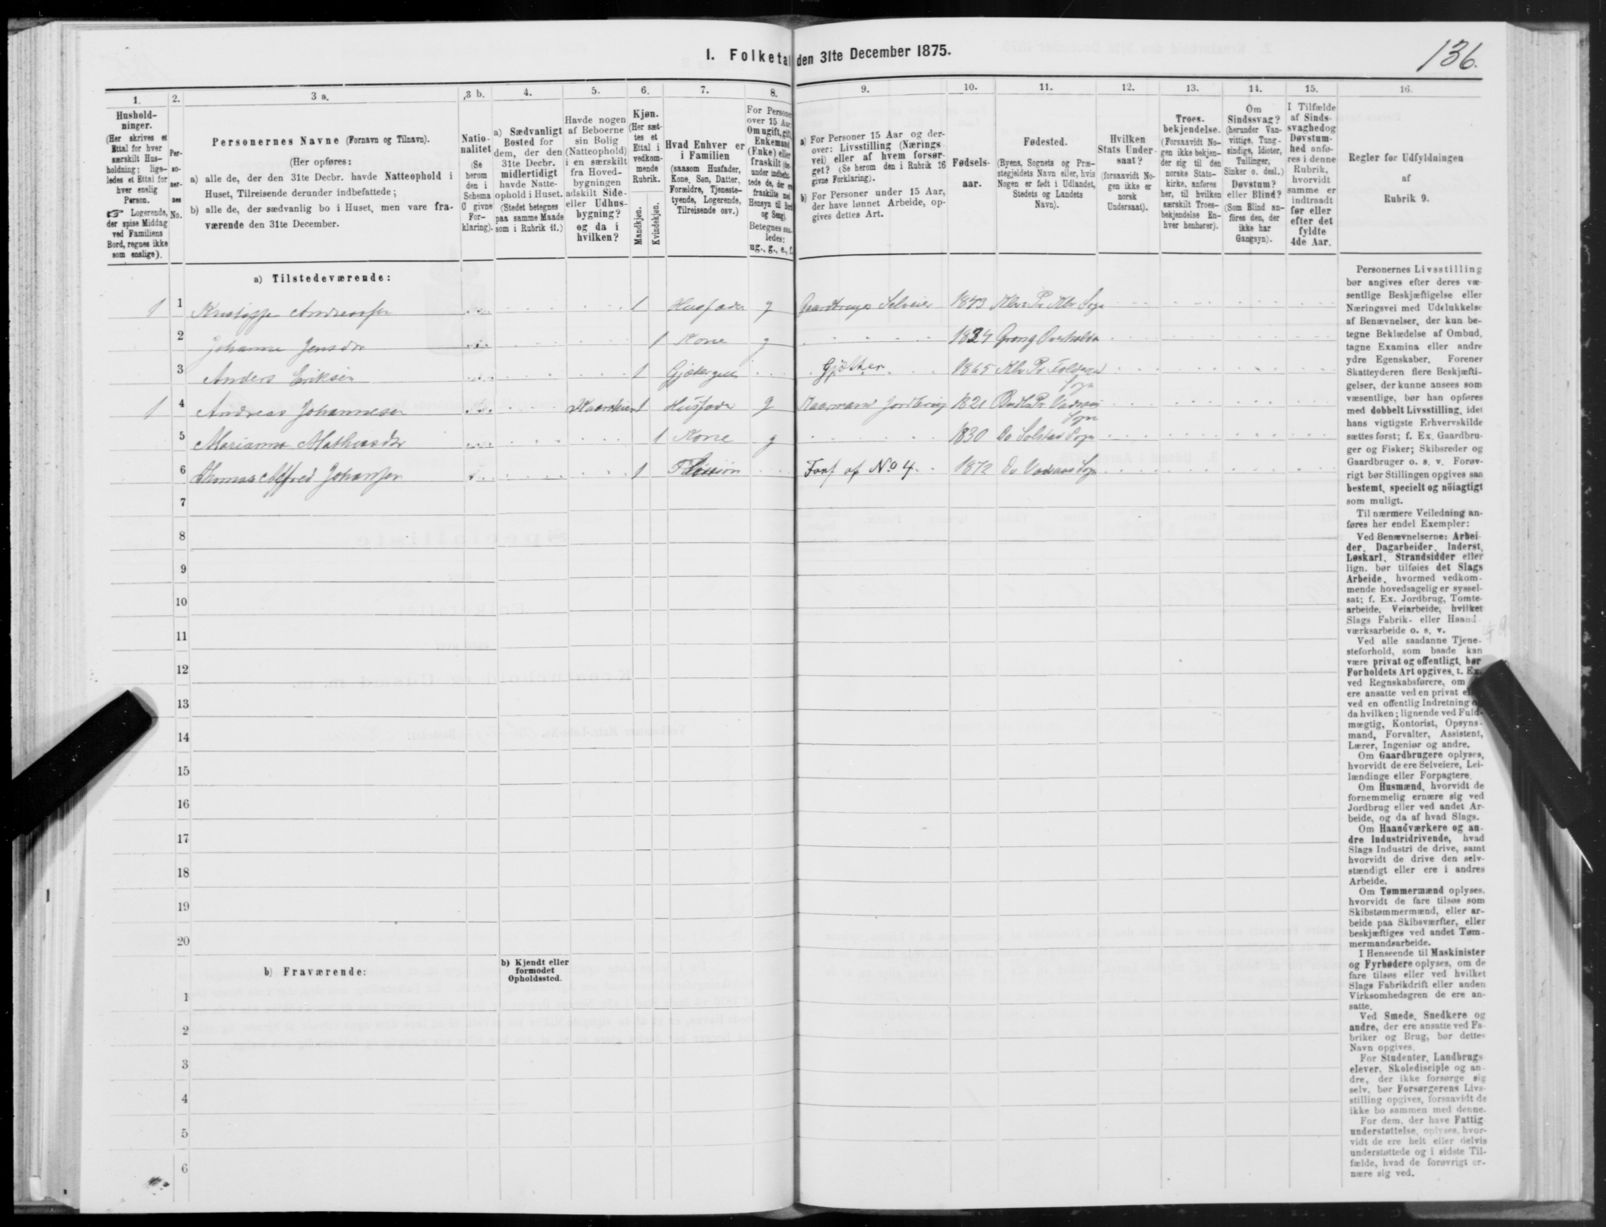 I. Folketal den 31te December 1875.
136.
1.
Hushold-
ninger.
(Her skrives et
Ettal for hver
særskilt Hus-
holdning; lige-
ledes et Ettal for
hver enslig
Person.
Logerende,
der spise Middag
ved Familiens
Bord, regnes ikke
som enslige).
2.
Per-
so-
ner-
nes
No.
3 a.
Personernes Navne (Fornavn og Tilnavn).
(Her opføres:
a) alle de, der den 31te Decbr. havde Natteophold i
Huset, Tilreisende derunder indbefattede;
b) alle de, der sædvanlig bo i Huset, men vare fra-
værende den 31te December.
3 b.
Natio-
nalitet
(Se
herom
den i
Schema
0 givne
For-
klaring).
4.
a) Sædvanligt
Bosted for
dem, der den
31te Decbr.
midlertidigt
havde Natte-
ophold i Huset.
(Stedet betegnes
paa samme Maade
som i Rubrik 11.)
5.
Havde nogen
af Beboerne
sin Bolig
(Natteophold)
i en særskilt
fra Hoved-
bygningen
adskilt Side-
eller Udhus-
bygning?
og da i
hvilken?
6.
Kjøn.
(Her sæt-
tes et
Ettal i
vedkom-
mende
Rubrik.
Mandkjøn.
Kvindekjøn.
7.
Hvad Enhver er
i Familien
(saasom Husfader,
Kone, Søn, Datter,
Forældre, Tjeneste-
tyende, Logerende,
Tilreisende osv.)
8.
For Personer
over 15 Aar
Om ugift, gift,
Enkemand
(Enke) eller
fraskilt
Betegnes saa-
ledes:
ug., g., e., f.
9.
a) For Personer 15 Aar og der-
over: Livsstilling (Nærings
vei) eller af hvem forsør-
get? (Se herom den i Rubrik 16
givne Forklaring).
b) For Personer under 15 Aar,
der have lønnet Arbeide, op-
gives dettes Art.
10.
Fødsels-
aar.
11.
Fødested.
(Byens, Sognets og Præ-
stegjeldets Navn eller, hvis
Nogen er født i Udlandet,
Stedets og Landets
Navn).
12.
Hvilken
Stats Under-
saat?
(forsaavidt No-
gen ikke er
norsk
Undersaat).
13.
Troes-
bekjendelse.
(Forsaavidt No-
gen ikke bekjen-
der sig til den
norske Stats-
kirke, anføres
her, til hvilken
særskilt Troes-
bekjendelse En-
hver henhører).
14.
Om
Sindssvag?
(herunder Van-
vittige, Tung-
sindige, Idioter,
Tullinger,
Sinker o. desl.)
Døvstum?
eller Blind?
(Som Blind an-
føres den, der
ikke har
Gangsyn).
15.
I Tilfælde
af Sinds-
svaghed og
Døvstum-
hed anfø-
res i denne
Rubrik,
hvorvidt
samme er
indtraadt
før eller
efter det
fyldte
4de Aar.
16.
Regler for Udfyldningen
af
Rubrik 9.
a) Tilstedeværende:
1 1 Kristoffer Andreassen 1 Husfader g Gaardbruger Selveier 1843 Klv Pr Klv Sogn
2 Johanna Jensdtr 1 Kone g 1824 Grong Overhalla
3 Anders Eriksen 1 Gjætergut Gjætter 1865 Klv Pr Foldereid Sogn
1 4 Andreas Johannesen 1 Husfader g Kaarmand Jordbrug 1821 Sogn
5 Marianna Mathiasdtr 1 Kone g 1830 Do Solstad Sogn
6 Thomas Alfred Johansen 1 Fors. af No 4. 1872 Do Sogn
7
8
9
10
11
12
13
14
15
16
17
18
19
20
b) Fraværende:
b) Kjendt eller
formodet
Opholdssted.
1
2
3
4
5
6
Personernes Livsstilling
bør angives efter deres væ-
sentlige Beskjæftigelse eller
Næringsvei med Udelukkelse
af Benævnelser, der kun be-
tegne Beklædelse af Ombud,
tagne Examina eller andre
ydre Egenskaber. Forener
Skatteyderen flere Beskjæfti-
gelser, der kunne ansees som
væsentlige, bør han opføres
med dobbelt Livsstilling, idet
hans vigtigste Erhvervskilde
sættes først; f. Ex. Gaardbru-
ger og Fisker; Skibsreder og
Gaardbruger o. s. v. Forøv-
rigt bør Stillingen opgives saa
bestemt, specielt og nöiagtigt
som muligt.
Til nærmere Veiledning an-
føres her endel Exempler:
Ved Benævnelserne: Arbei-
der, Dagarbeider, Inderst,
Løskarl, Strandsidder eller
lign. bør tilføies det Slags
Arbeide, hvormed vedkom-
mende hovedsagelig er syssel-
sat; f. Ex. Jordbrug, Tomte-
arbeide, Veiarbeide, hvilket
Slags Fabrik- eller Haand-
værksarbeide o. s. v.
Ved alle saadanne Tjene-
steforhold, som baade kan
være privat og offentligt, bør
Forholdets Art opgives, t. Ex.
ved Regnskabsførere, om
ere ansatte ved en privat
ved en offentlig Indretning
da hvilken; lignende ved Fuld-
mægtig, Kontorist, Opsyns-
mand, Forvalter, Assistent,
Lærer, Ingeniør og andre.
Om Gaardbrugere oplyses,
hvorvidt de ere Selveiere, Lei-
lændinge eller Forpagtere.
Om Husmænd, hvorvidt de
fornemmelig ernære sig ved
Jordbrug eller ved andet Ar-
beide, og da af hvad Slags.
Om Haandværkere og an-
dre Industridrivende, hvad
Slags Industri de drive, samt
hvorvidt de drive den selv-
stændigt eller ere i andres
Arbeide.
Om Tømmermænd oplyses,
hvorvidt de fare tilsøs som
Skibstømmermænd, eller ar-
beide paa Skibsværfter, eller
beskjæftiges ved andet Tøm-
mermandsarbeide.
I Henseende til Maskinister
og Fyrbødere oplyses, om de
fare tilsøs eller ved hvilket
Slags Fabrikdrift eller anden
Virksomhedsgren de ere an-
satte.
Ved Smede, Snedkere og
andre, der ere ansatte ved Fa-
briker og Brug, bør dettes
Navn opgives.
For Studenter, Landbrugs-
elever, Skoledisciple og an-
dre, der ikke forsørge sig
selv, bør Forsørgerens Livs-
stilling opgives, forsaavidt de
ikke bo sammen med denne.
For dem, der have Fattig-
understøttelse, oplyses, hvor-
vidt de ere helt eller delvis
understøttede og i sidste Til-
fælde, hvad de forøvrigt er-
nære sig ved.